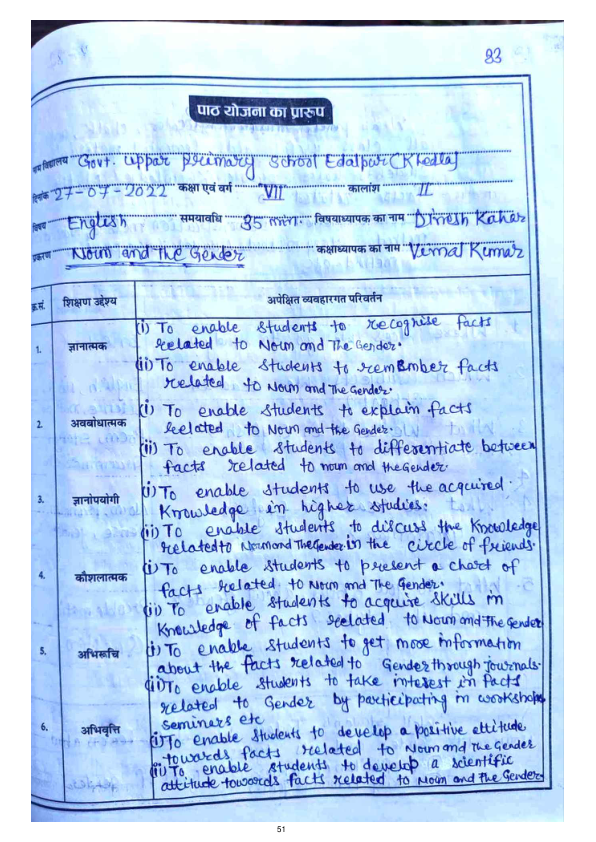 83
पाठ योजना का प्रारूप
विद्यालय Govt. uppar primary school Edalpar (Khedla)
दिनांक 27-07-2022 कक्षा एवं वर्ग "VII" कालांश II
विषय English समयावधि 35 min. विषयाध्यापक का नाम Dinesh Kahar
प्रकरण Noun and The Gender कक्षाध्यापक का नाम Vimal Kumar
क्र.सं. शिक्षण उद्देश्य अपेक्षित व्यवहारगत परिवर्तन
1. ज्ञानात्मक (i) To enable students to recognise facts
related to Noun and The Gender.
(ii) To enable students to remember facts
related to Noun and The Gender.
2. अवबोधात्मक (i) To enable students to explain facts
related to Noun and the Gender.
(ii) To enable students to differentiate between
facts related to noun and the Gender.
3. ज्ञानोपयोगी (i) To enable students to use the acquired
Knowledge in higher studies.
(ii) To enable students to discuss the Knowledge
related to Noun and The Gender in the circle of friends.
4. कौशलात्मक (i) To enable students to present a chart of
facts related to Noun and The Gender.
(ii) To enable students to acquire skills in
Knowledge of facts related to Noun and The Gender
5. अभिरूचि (i) To enable students to get more information
about the facts related to Gender through journals.
(ii) To enable students to take interest in facts
related to Gender by participating in workshops
seminers etc
6. अभिवृत्ति (i) To enable students to develop a positive attitude
towards facts related to Noun and The Gender
(ii) To enable students to develop a scientific
attitude towards facts related to Noun and The Gender.
51